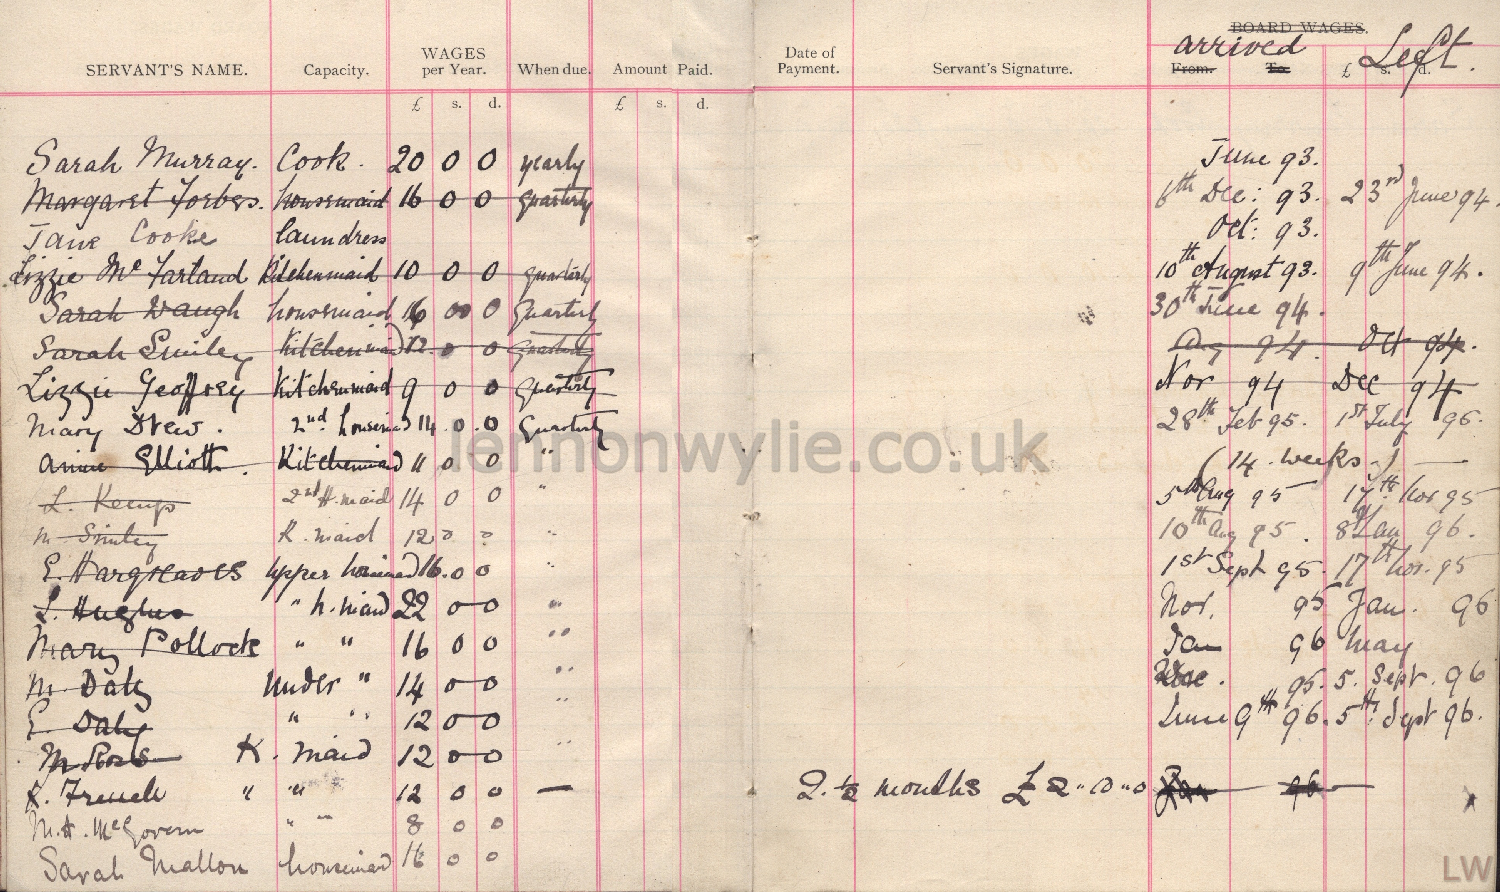 BOARD WAGES.
arrived Left.
SERVANT'S NAME. Capacity. WAGES per Year. When due. Amount Paid. Date of Payment. Servant's Signature. From. To. £ s. d.
£ s. d. £ s. d.
Sarah Murray. Cook. 20 0 0 yearly June 93.
Margaret Forbes. housemaid 16 0 0 quarterly 6th Dec: 93. 23rd June 94.
Jane Cooke laundress Oct: 93.
Lizzie Mc Farland Kitchenmaid 10 0 0 quarterly 10th August 93. 9th June 94.
Sarah Waugh housemaid 16 00 0 Quarterly 30th June 94.
Sarah Smiley Kitchenmaid 12. 0 0 Quarterly Aug 94. Oct 94.
Lizzie Geoffrey Kitchenmaid 9 0 0 Quarterly Nov 94 Dec 94
Mary Drew. 2nd housemaid 14 0 0 Quarterly 28th Feb 95. 1st July 96.
Annie Elliott. Kitchenmaid 11 0 0 " (14 weeks)
L. Kemps 2nd H. maid 14 0 0 " 5th Aug 95 17th Nov 95
M Smiley K. maid 12 0 0 " 10th Aug 95. 8th Jan 96.
E. Hargreaves upper housemaid 16. 0 0 " 1st Sept 95. 17th Nov. 95
L. Hughes " h. maid 22 0 0 " Nov. 95 Jan. 96
Mary Pollock " " 16 0 0 " Jan 96 May
M. Daly under " 14 0 0 " Dec. 95. 5. Sept. 96
E. Daly " " 12 0 0 " June 9th 96. 5th Sept 96.
M Ross K. maid 12 0 0 "
K. French " " 12 0 0 — 2.½ months £2"10"0 Jan 96
M. H. McGovern " " 8 0 0
Sarah Mallon housemaid 16 0 0
lennonwylie.co.uk
LW